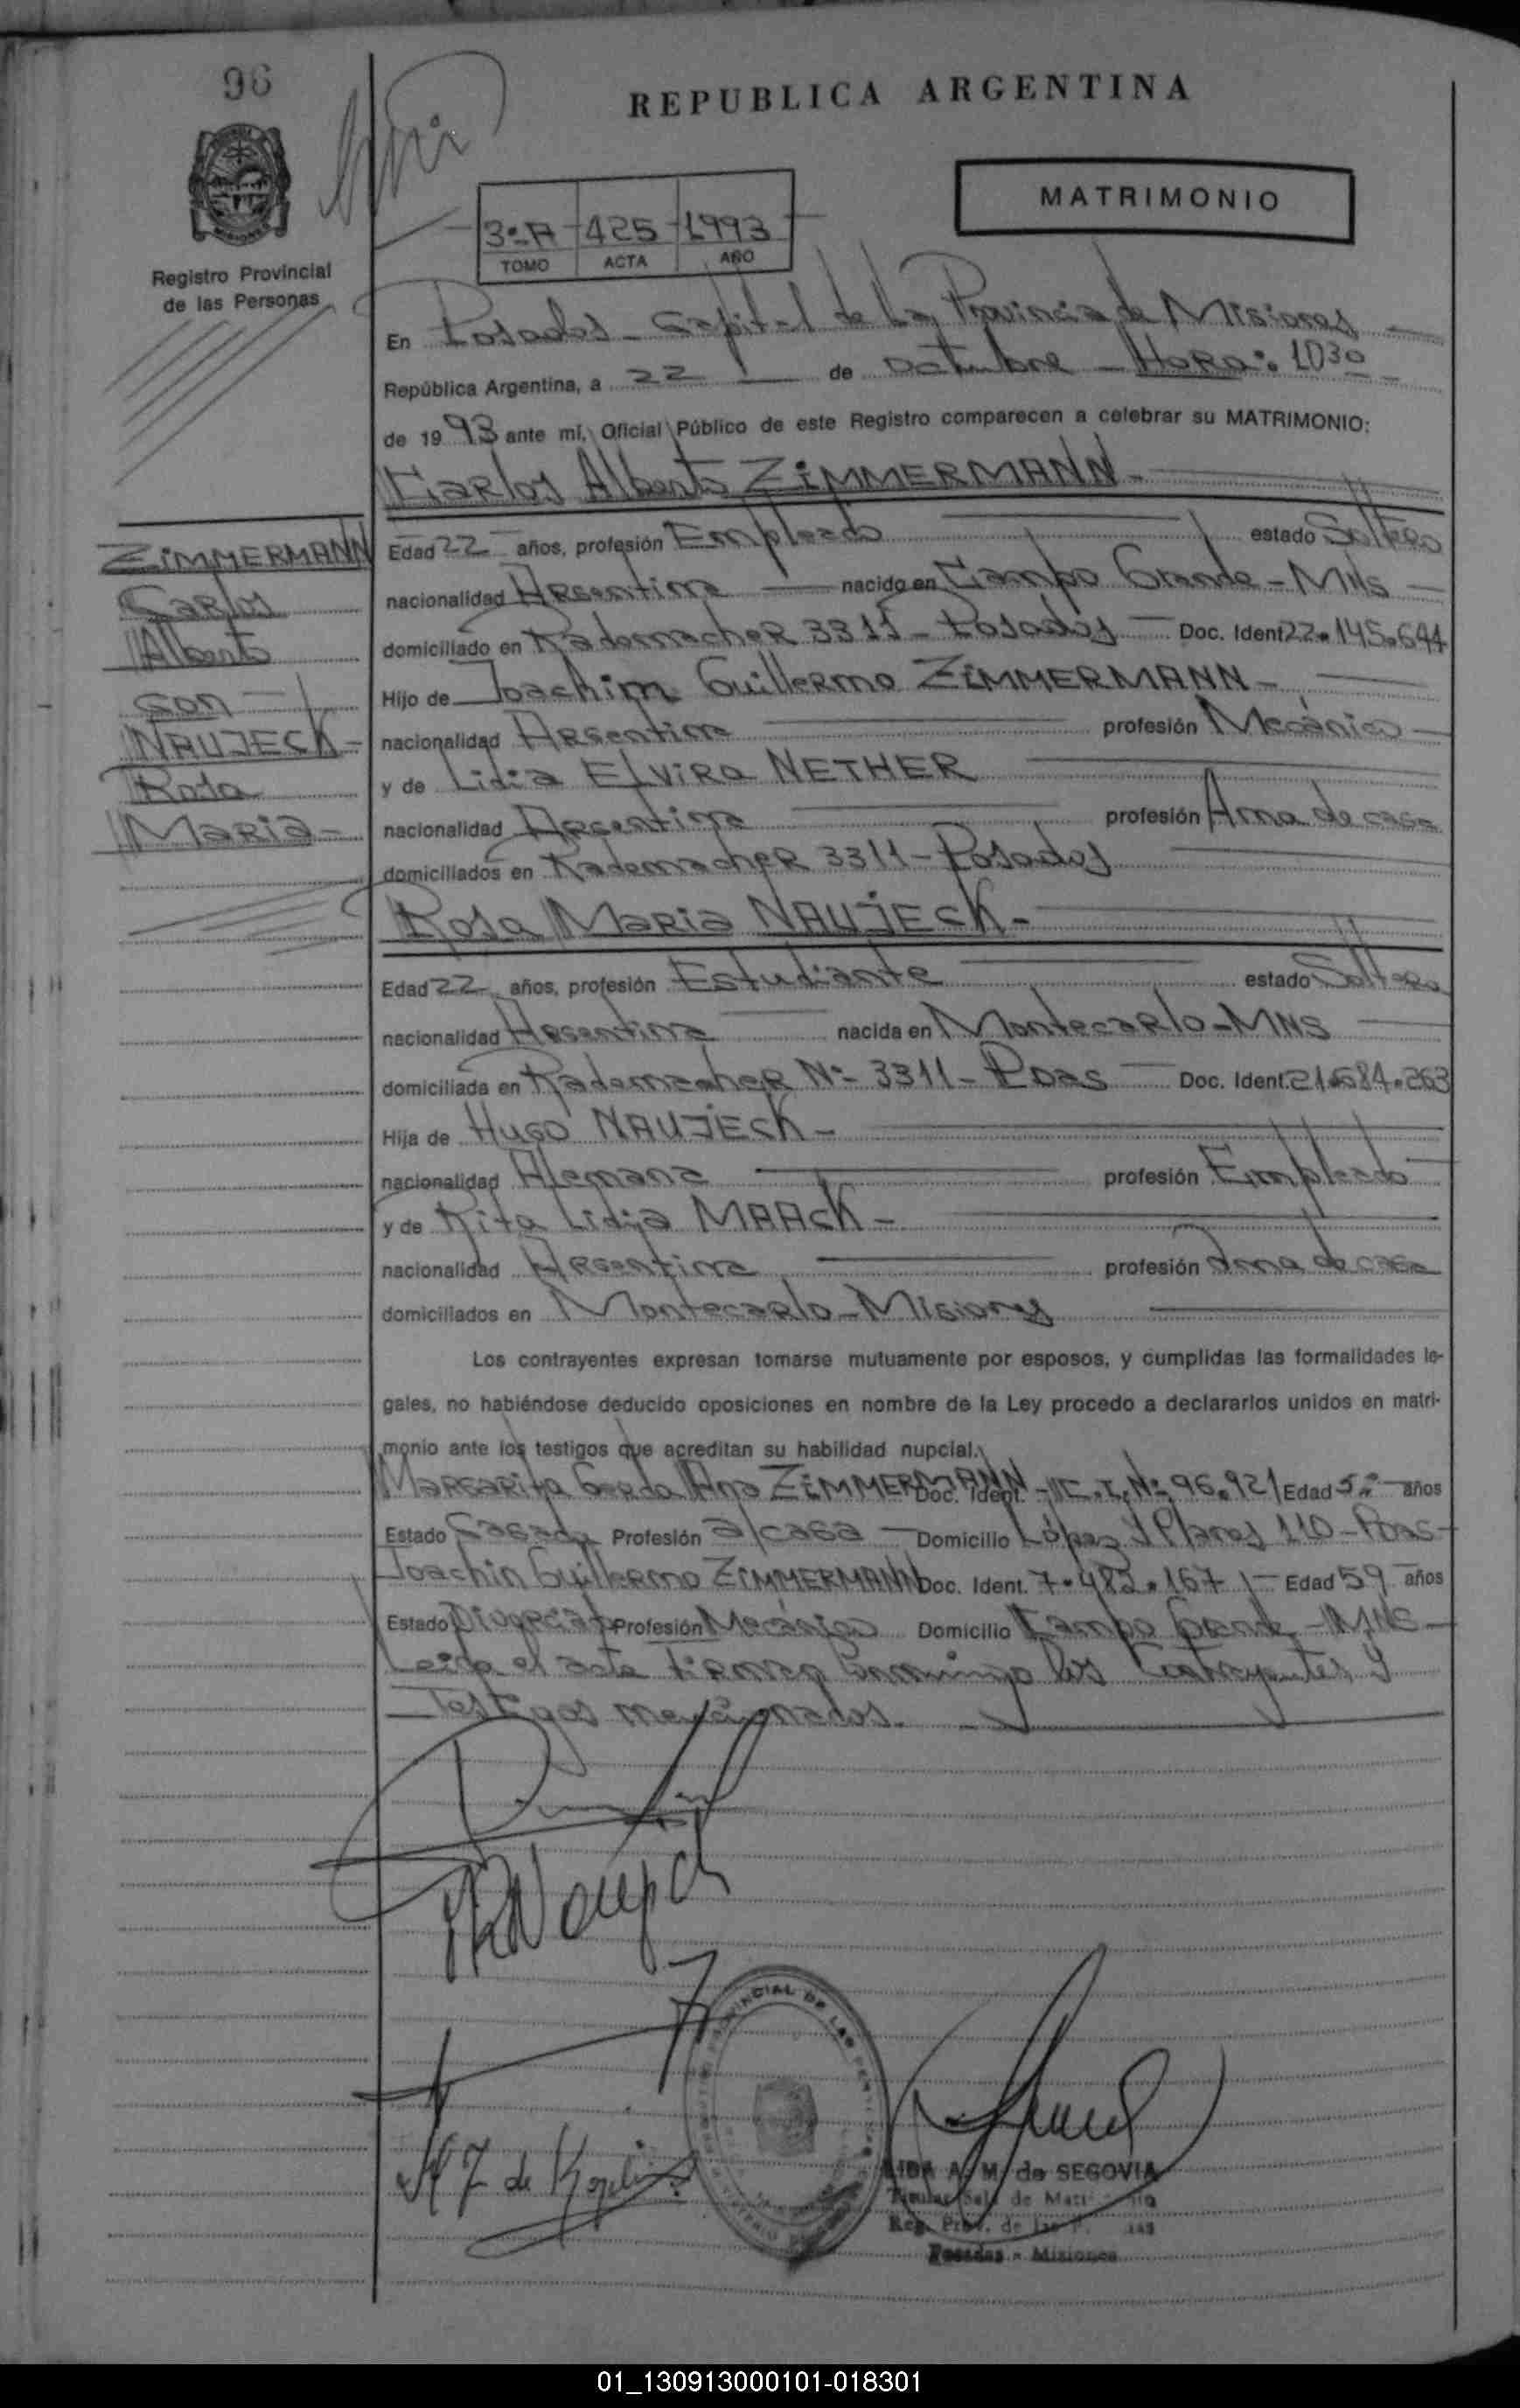 96
REPUBLICA ARGENTINA
MATRIMONIO
3º A 425 1993
TOMO ACTA AÑO
Registro Provincial
de las Personas
En Posadas - Capital de la Provincia de Misiones
República Argentina, a 22 de Octubre - Hora: 1030
de 1993 ante mí, Oficial Público de este Registro comparecen a celebrar su MATRIMONIO:
Carlos Alberto ZIMMERMANN -
ZIMMERMANN
Carlos
Alberto
con
NAUJECK -
Rosa
Maria -
Edad 22 años, profesión Empleado estado Soltero
nacionalidad Argentina nacido en Campo Grande - MNS
domiciliado en Rademacher 3311 - Posadas Doc. Ident 22.145.644
Hijo de Joachim Guillermo ZIMMERMANN -
nacionalidad Argentina profesión Mecánico
y de Lidia Elvira NETHER
nacionalidad Argentina profesión Ama de casa
domiciliados en Rademacher 3311 - Posadas
Rosa Maria NAUJECK -
Edad 22 años, profesión Estudiante estado Soltera
nacionalidad Argentina nacida en Montecarlo - MNS
domiciliada en Rademacher Nº 3311 - Pdas Doc. Ident. 21.684.263
Hija de Hugo NAUJECK -
nacionalidad Alemana profesión Empleado
y de Rita Lidia MAACK -
nacionalidad Argentina profesión Ama de casa
domiciliados en Montecarlo - Misiones
Los contrayentes expresan tomarse mutuamente por esposos, y cumplidas las formalidades le-
gales, no habiéndose deducido oposiciones en nombre de la Ley procedo a declararlos unidos en matri-
monio ante los testigos que acreditan su habilidad nupcial.
Margarita Gerda Ana ZIMMERMANN Doc. Ident. - C.I. Nº 96.921 Edad años
Estado Casada Profesión a/casa Domicilio López y Planes 110 - Pdas -
Joachin Guillermo ZIMMERMANN Doc. Ident. 7.482.167 Edad 59 años
Estado Divorciado Profesión Mecánico Domicilio Campo Grande - MNS -
Leida el acta firman conmigo los Contrayentes y
Testigos mencionados.
RNaujeck
M Z de
PROVINCIAL DE LAS
LIDA A. M. de SEGOVIA
Titular Sala de
Reg. Prov. de las P.
Posadas - Misiones
01_130913000101-018301